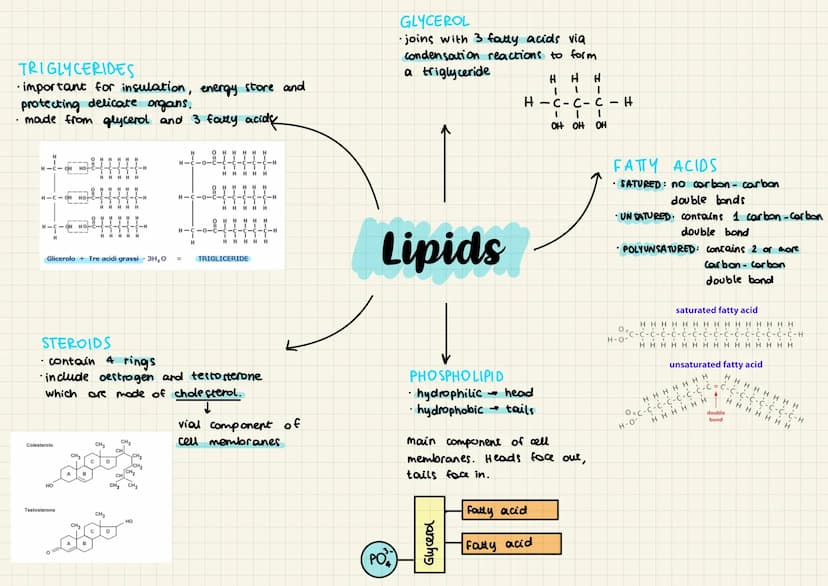 GLYCEROL
· joins with 3 fatty acids via
condensation reactions to form
a triglyceride
H H H
H - C - C - C - H
OH OH OH
TRIGLYCERIDES
· important for insulation, energy store and
protecting delicate organs.
· made from glycerol and 3 fatty acids
Glicerolo + Tre acidi grassi - 3H₂O = TRIGLICERIDE
FATTY ACIDS
· SATURED: no carbon-carbon
double bonds
· UNSATURED: contains 1 carbon-carbon
double bond
· POLYUNSATURED: contains 2 or more
carbon-carbon
double bond
saturated fatty acid
unsaturated fatty acid
double
bond
Lipids
STEROIDS
· contain 4 rings
· include oestrogen and testosterone
which are made of cholesterol.
vial component of
cell membranes
Colesterolo
CH₃
CH₃
CH₃
HO
A B C D
Testosterone
CH₃
CH₃
HO
O
A B C D
PHOSPHOLIPID
· hydrophilic → head
· hydrophobic → tails
main component of cell
membranes. Heads face out,
tails face in.
PO₄³⁻
Glycerol
Fatty acid
Fatty acid